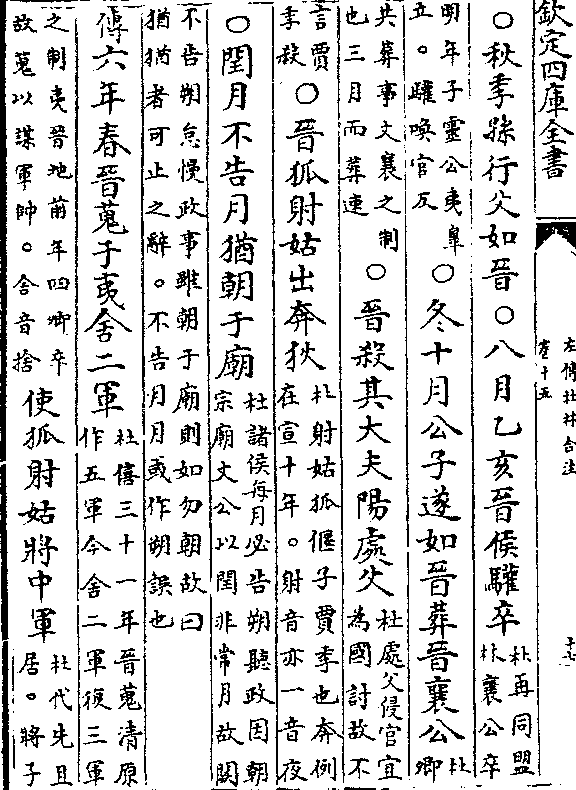 欽定四庫全書
左傳杜林合注
卷十五
十七
○秋季孫行父如晉○八月乙亥晉侯驩卒
杜再同盟
林襄公卒
明年子靈公夷臯
立。驩喚官反
○冬十月公子遂如晉葬晉襄公
杜
卿
共葬事文襄之制
也三月而葬速
○晉殺其大夫陽處父
杜處父侵官宜
為國討故不
言賈
季殺
○晉狐射姑出奔狄
杜射姑狐偃子賈季也奔例
在宣十年。射音亦一音夜
○閏月不告月猶朝于廟
杜諸侯每月必告朔聽政因朝
宗廟文公以閏非常月故闕
不告朔怠慢政事雖朝于廟則如勿朝故曰
猶猶者可止之辭。不告月月或作朔誤也
傳六年春晉蒐于夷舍二軍
杜僖三十一年晉蒐清原
作五軍今舍二軍復三軍
之制夷晉地前年四卿卒
故蒐以謀軍帥。舍音捨
使狐射姑將中軍
杜代先且
居。將子